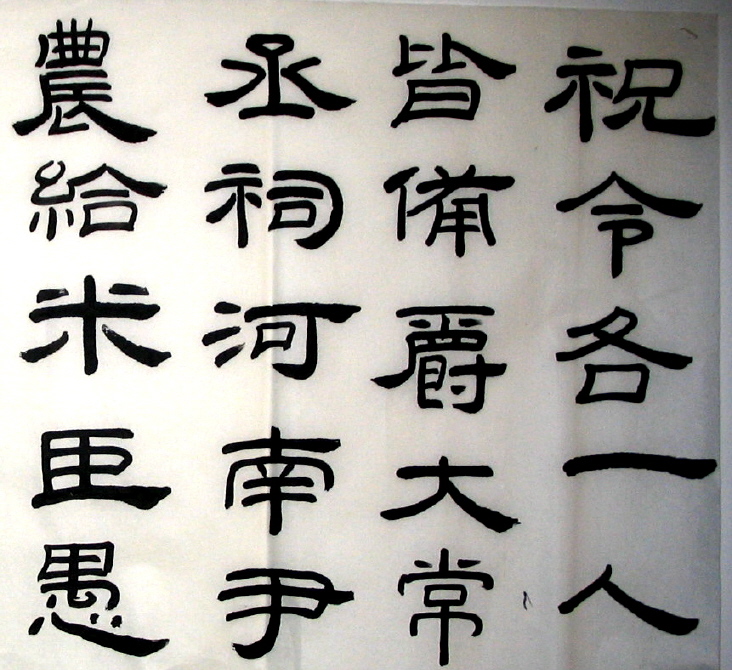 祝令各一人
皆備爵大常
丞祠河南尹
農給米臣愚